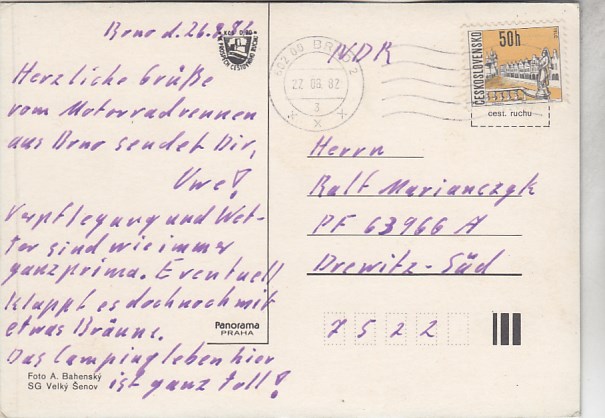 Brno d. 26.8.82
Herzliche Grüße
vom Motorradrennen
aus Brno sendet Dir,
Uwe!
Verpflegung und Wet-
ter sind wie immer
ganz prima. Eventuell
klappt es doch noch mit
etwas Bräune.
Das Campingleben hier
ist ganz toll!
Foto A. Bahenský
SG Velký Šenov
Panorama
PRAHA
602 00 BRNO 2
27.08.82
3
x x x
NDR
ČESKOSLOVENSKO
50h
cest. ruchu
Herrn
Ralf Marianczyk
PF 63966 A
Drewitz-Süd
7522